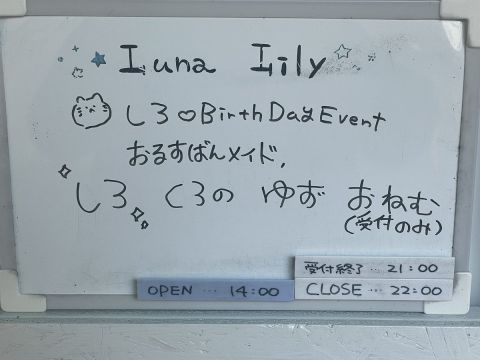 Luna Lily
しろ♡BirthDayEvent
おるすばんメイド,
しろ くろの ゆず おねむ
(受付のみ)
受付終了… 21:00
OPEN … 14:00
CLOSE … 22:00